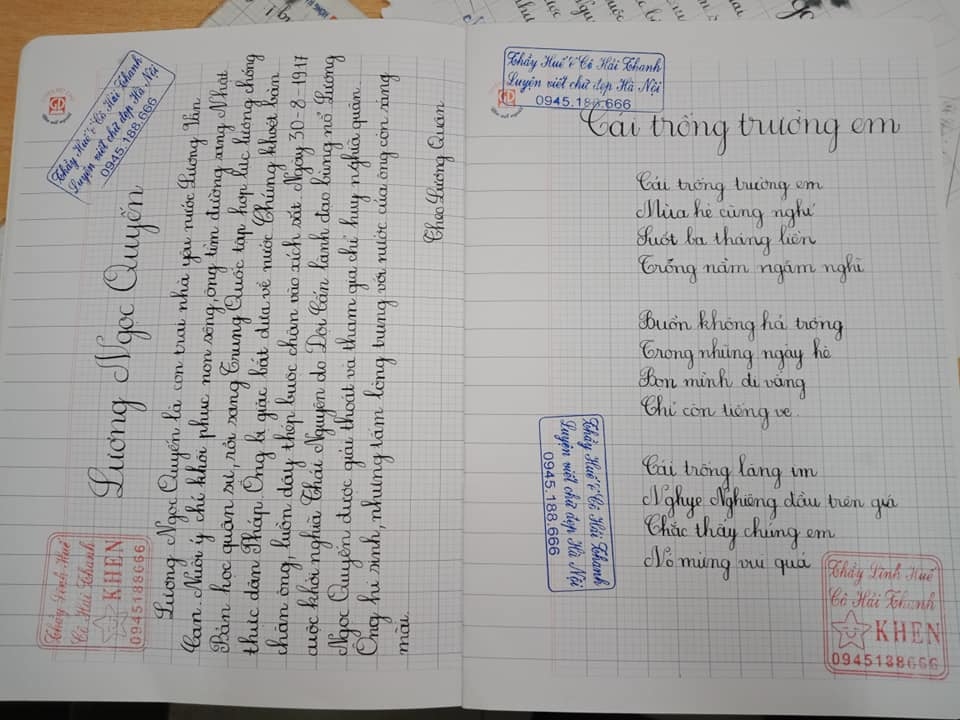 Thầy Huế & Cô Hải Thanh
Luyện viết chữ đẹp Hà Nội
0945.188.666
Lương Ngọc Quyến
Lương Ngọc Quyến là con trai nhà yêu nước Lương Văn
Can. Nuôi ý chí khôi phục non sông, ông tìm đường sang Nhật
Bản học quân sự, rồi sang Trung Quốc tập hợp lực lượng chống
thực dân Pháp. Ông bị giặc bắt đưa về nước. Chúng khoét bàn
chân ông, luồn dây thép buộc chân vào xích sắt. Ngày 30-8-1917
cuộc khởi nghĩa Thái Nguyên do Đội Cấn lãnh đạo bùng nổ. Lương
Ngọc Quyến được giải thoát và tham gia chỉ huy nghĩa quân.
Ông hi sinh, nhưng tấm lòng trung với nước của ông còn sáng
mãi.
Theo Lương Quân
Thầy Đình Huế
Cô Hải Thanh
KHEN
0945188666
Thầy Huế & Cô Hải Thanh
Luyện viết chữ đẹp Hà Nội
0945.188.666
Cái trống trường em
Cái trống trường em
Mùa hè cũng nghỉ
Suốt ba tháng liền
Trống nằm ngẫm nghĩ
Buồn không hả trống
Trong những ngày hè
Bọn mình đi vắng
Chỉ còn tiếng ve.
Cái trống lặng im
Nghye Nghiêng đầu trên giá
Chắc thấy chúng em
Nó mừng vui quá
Thầy Huế & Cô Hải Thanh
Luyện viết chữ đẹp Hà Nội
0945.188.666
Thầy Đình Huế
Cô Hải Thanh
KHEN
0945188666